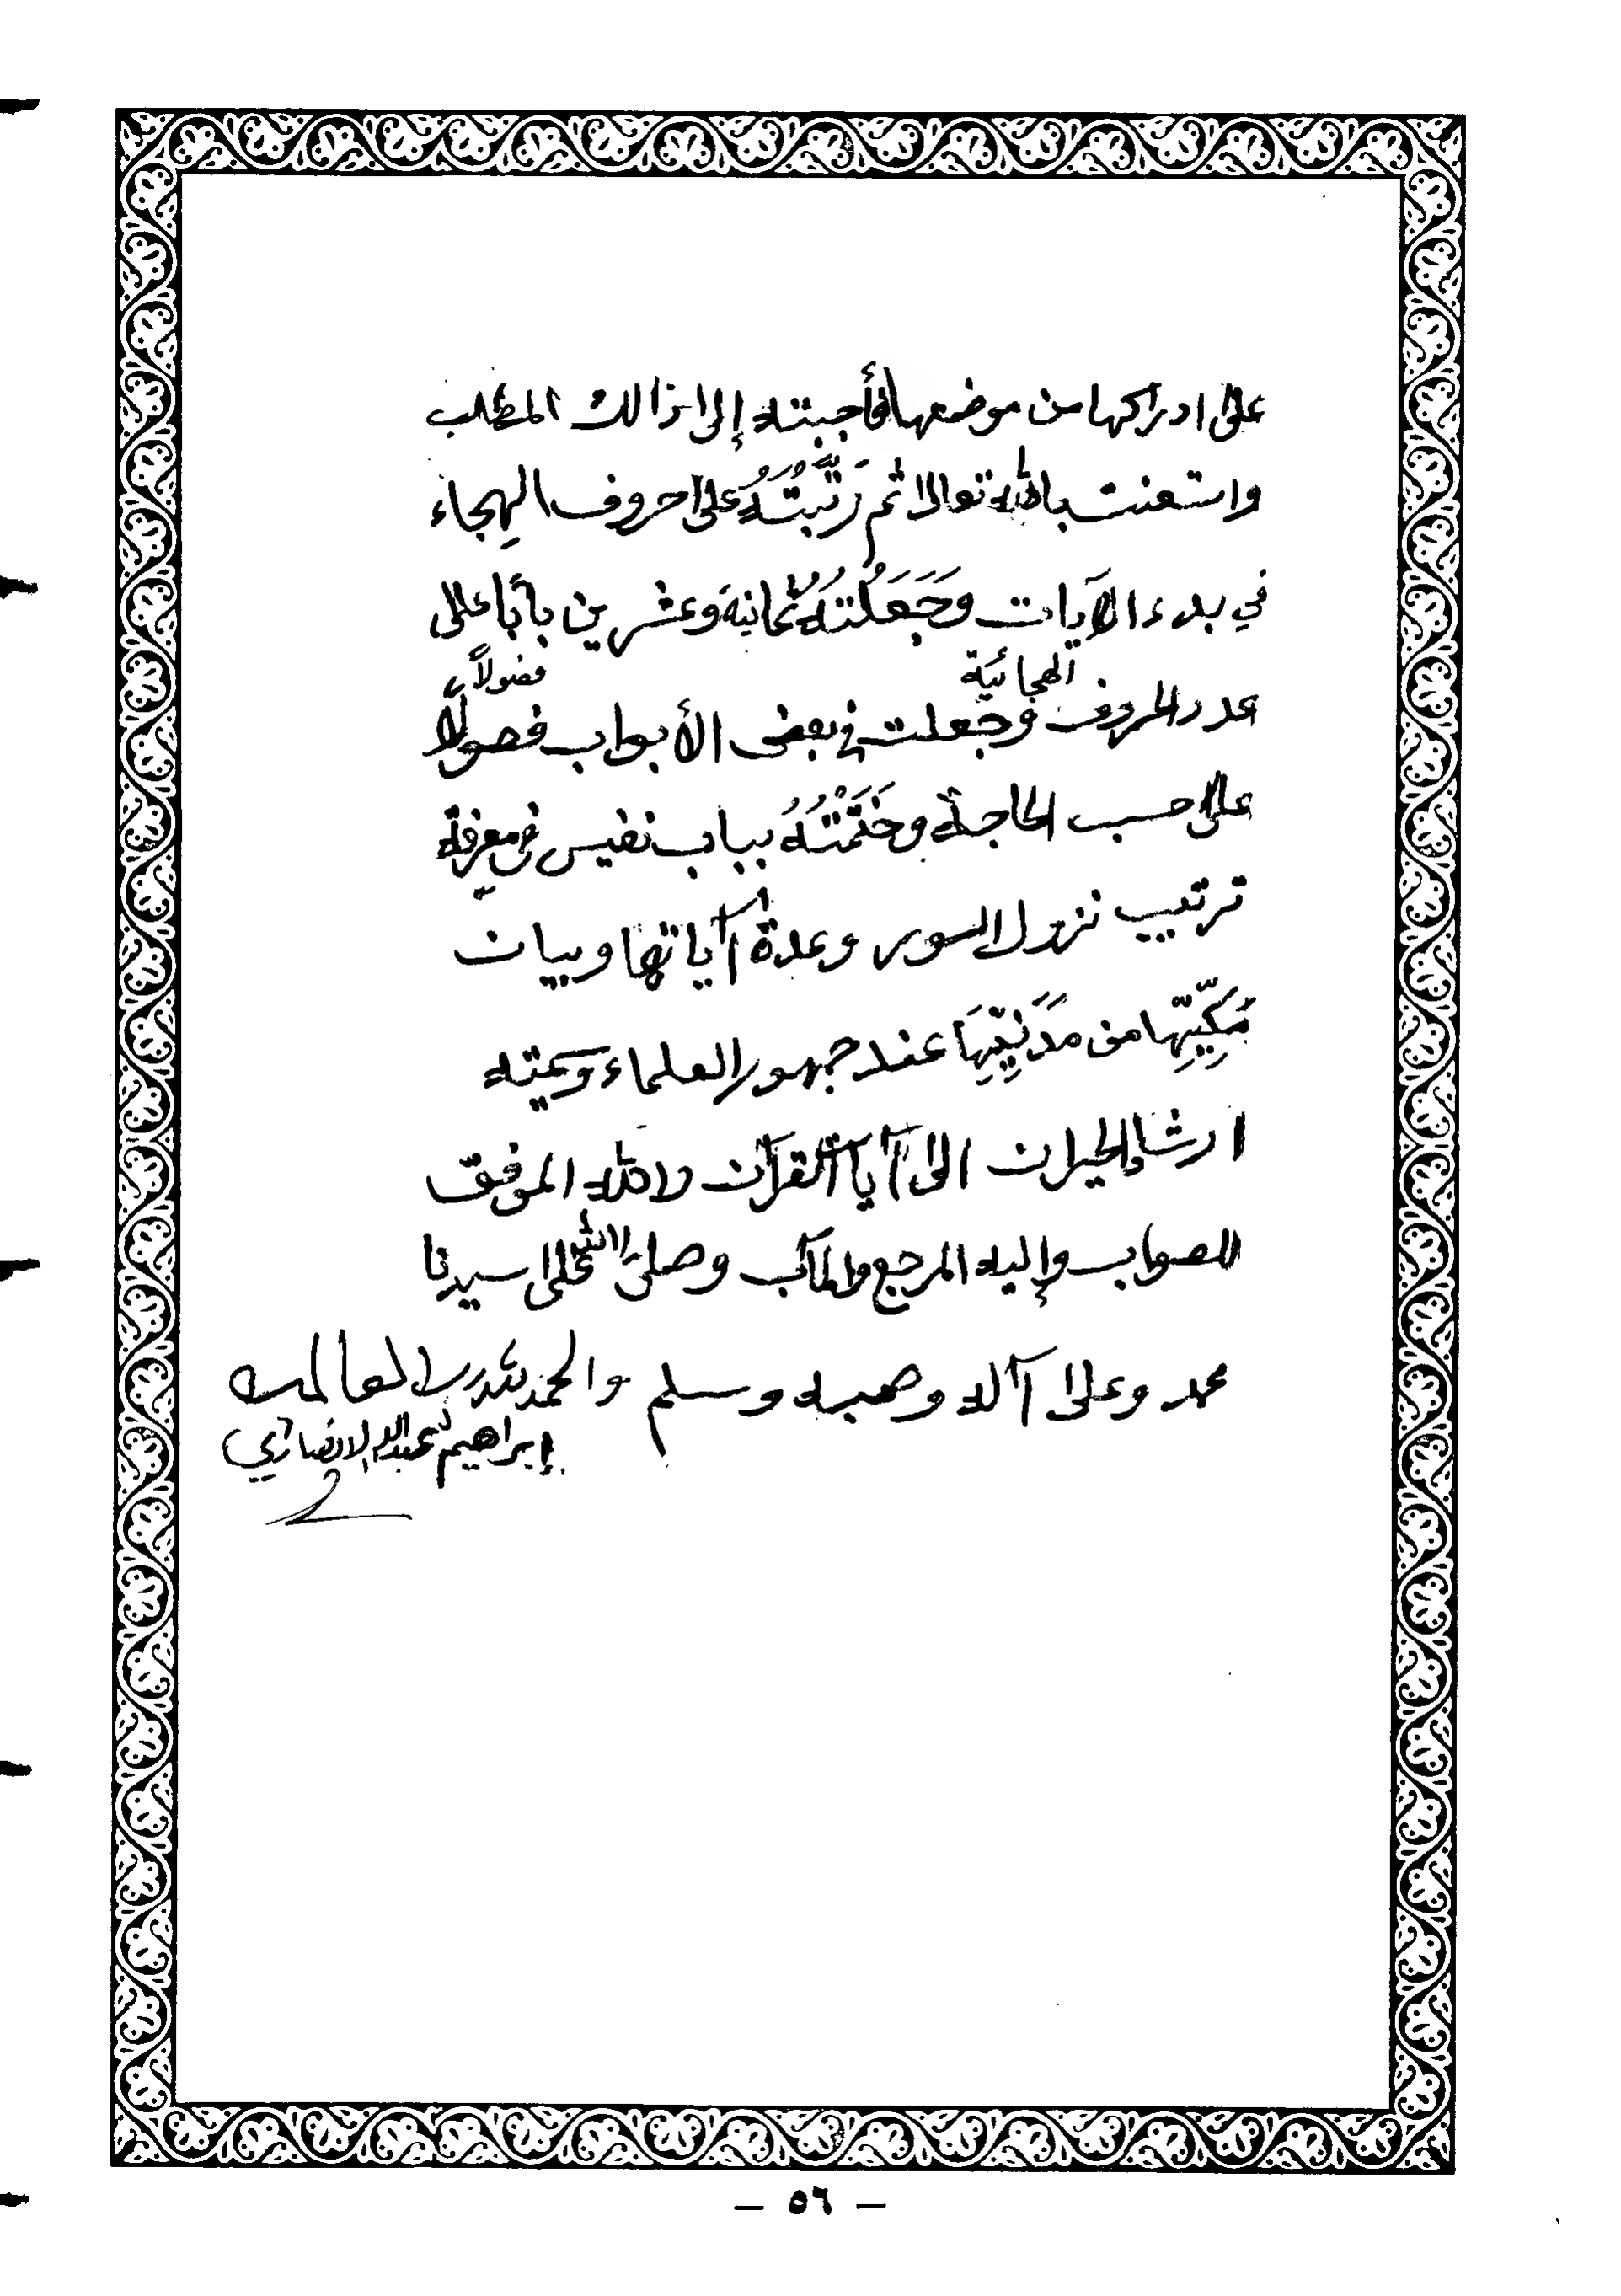 على ادراكها من موضعها فأجبته إلى ذالك المطلب
واستعنت بالله تعالى ثم رَتَّبتُهُ على حروف الهِجاء
في بدء الآيات وَجَعَلتُهُ ثمانية وعشرين بابًا على
الهجائية فصولاً
عدد الحروف وجعلت في بعض الأبواب فصولاً
على حسب الحاجة وخَتَمْتُهُ بباب نفيس في معرفة
ترتيب نزول السور وعدة آياتها وبيان
مَكِّيِّهَا من مَدَنِيِّهَا عند جمهور العلماء وسميته
ارشاد الحيران الى آيات القرآن والله الموفق
للصواب وإليه المرجع والمآب وصلى الله على سيدنا
محمد وعلى آله وصحبه وسلم والحمد لله رب العالمين
إبراهيم عبدالله الانصاري
— ٥٦ —